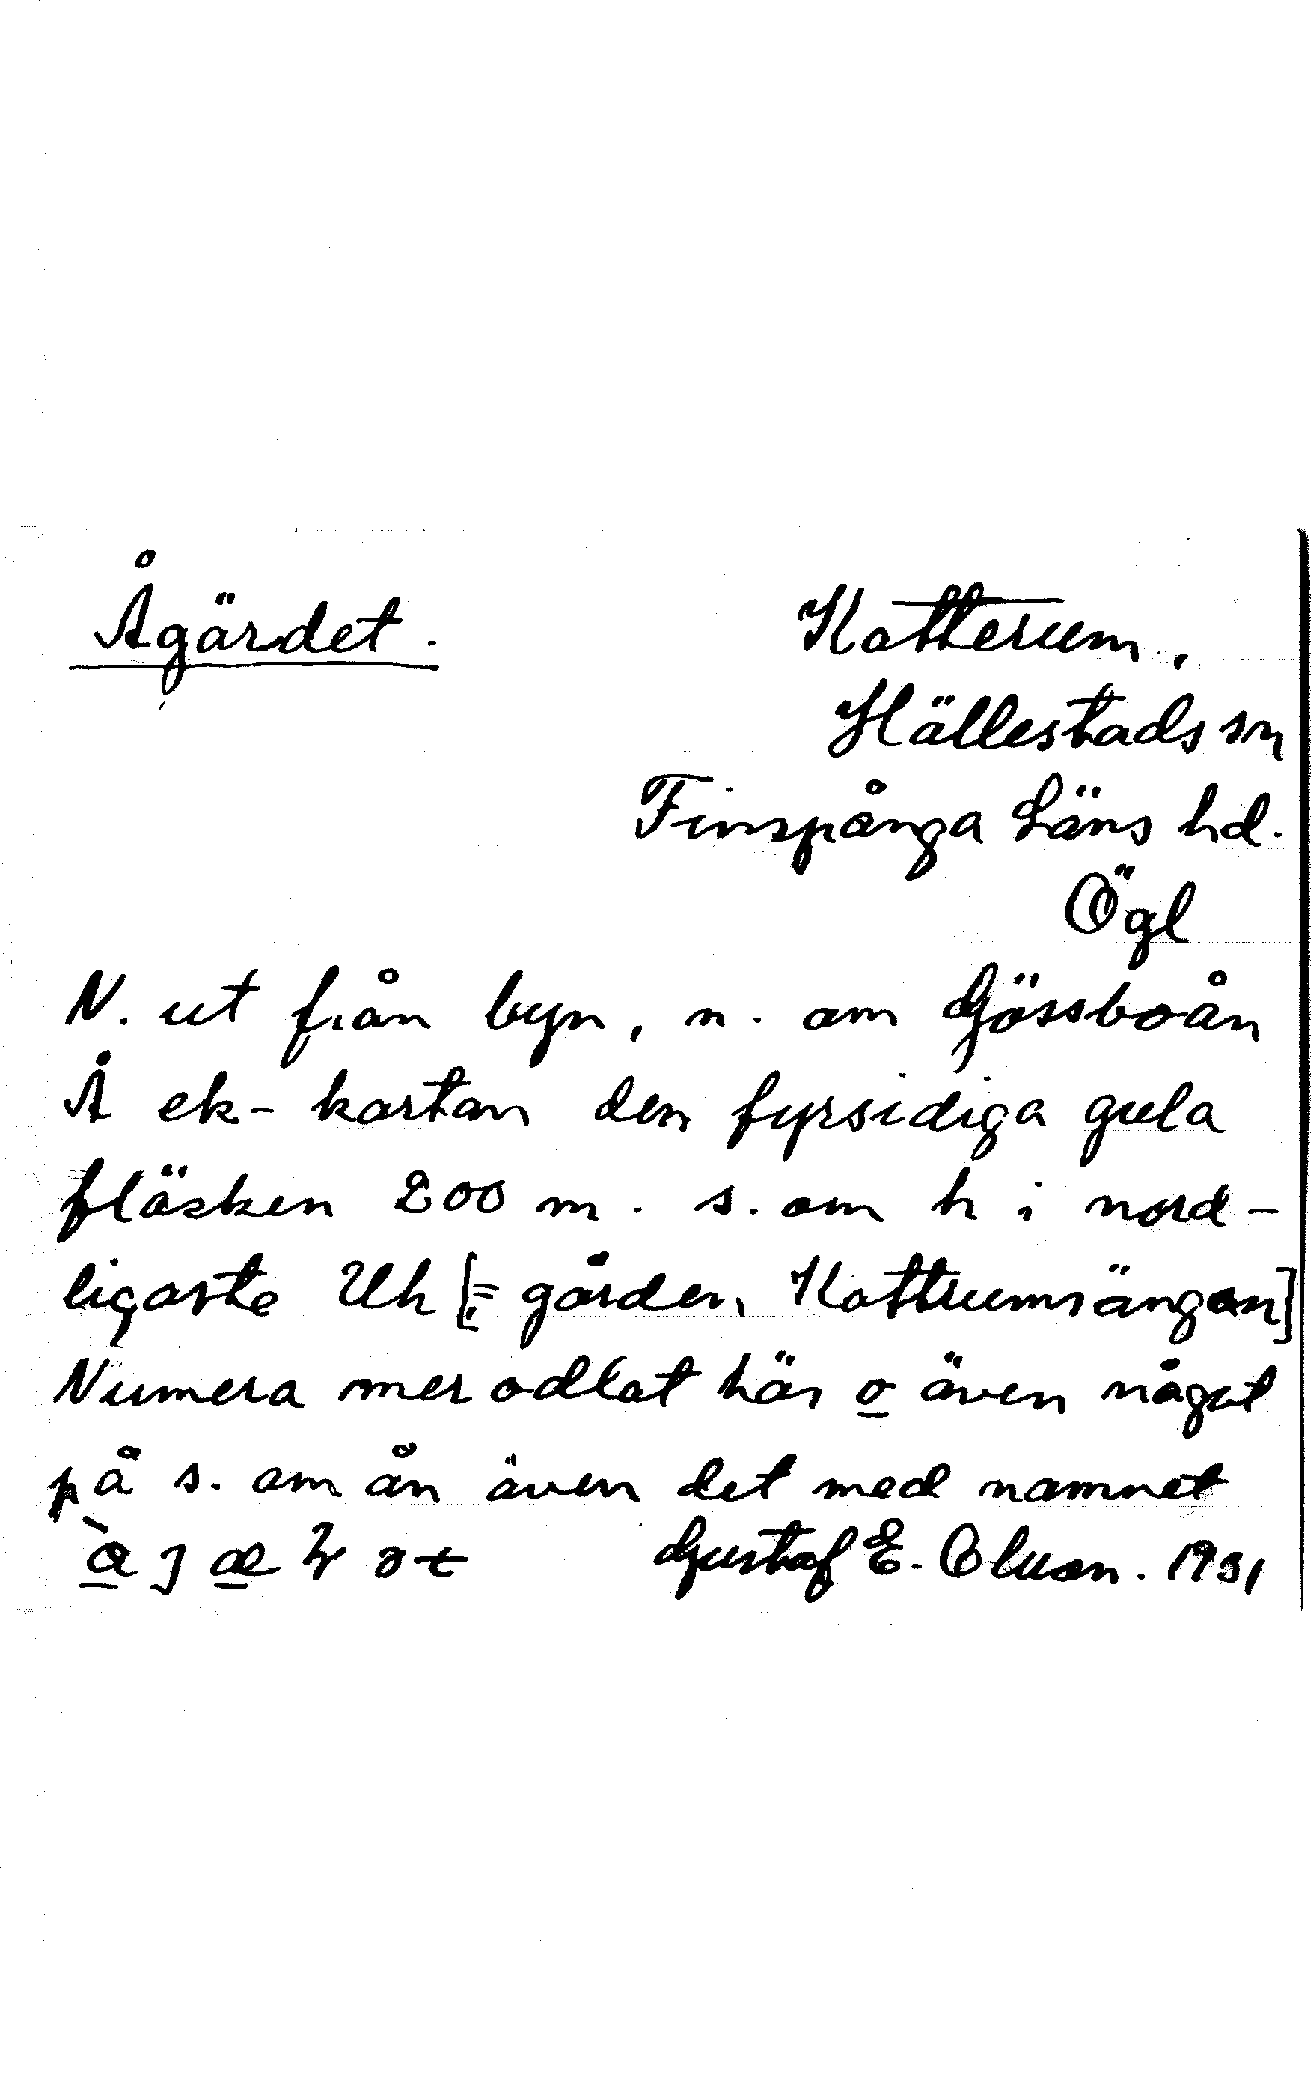 Ågärdet.
Kotterum,
Hällestads sn
Finspånga Läns hd.
Ögl
N. ut från byn, n. om Gössboån
Å ek-kartan den fyrsidiga gula
fläcken 200 m. s. om h i nord-
ligaste Uh [= gården, Kottrumsängen]
Numera mer odlat här o även något
på s. om ån även det med namnet
Gustaf E. Olsson. 1931